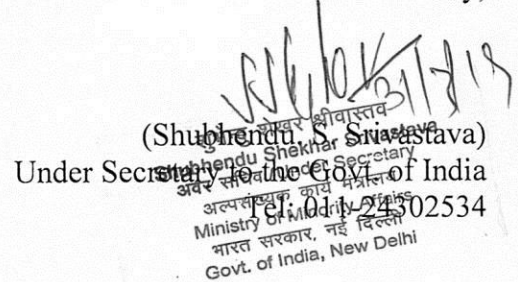 31/7/19
(Shubhendu S. Srivastava)
Under Secretary to the Govt. of India
Tel: 011-24302534
शेखर श्रीवास्तव
Shubhendu Shekhar Srivastava
अवर सचिव/Under Secretary
अल्पसंख्यक कार्य मंत्रालय
Ministry of Minority Affairs
भारत सरकार, नई दिल्ली
Govt. of India, New Delhi